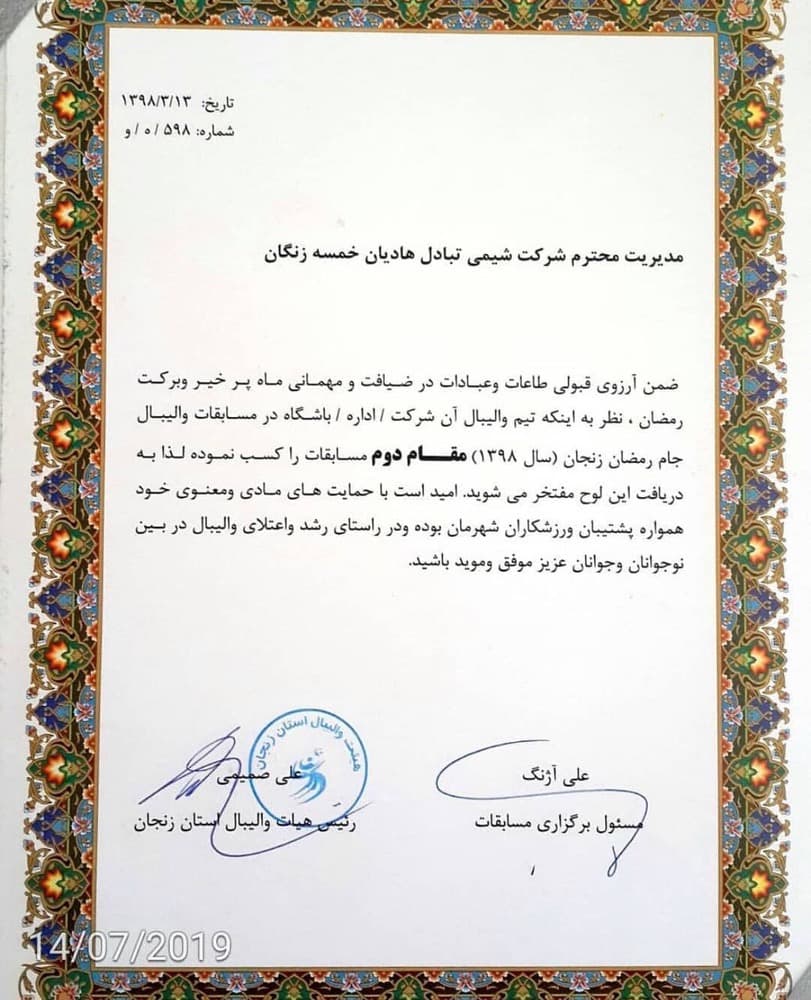 تاریخ: ۱۳۹۸/۳/۱۳
شماره: ۵۹۸ / ه / و
مدیریت محترم شرکت شیمی تبادل هادیان خمسه زنگان
ضمن آرزوی قبولی طاعات وعبادات در ضیافت و مهمانی ماه پر خیر وبرکت
رمضان ، نظر به اینکه تیم والیبال آن شرکت / اداره / باشگاه در مسابقات والیبال
جام رمضان زنجان (سال ۱۳۹۸) مقام دوم مسابقات را کسب نموده لذا به
دریافت این لوح مفتخر می شوید. امید است با حمایت های مادی ومعنوی خود
همواره پشتیبان ورزشکاران شهرمان بوده ودر راستای رشد واعتلای والیبال در بین
نوجوانان وجوانان عزیز موفق وموید باشید.
علی آژنگ
مسئول برگزاری مسابقات
هیئت والیبال استان زنجان
علی صمیمی
رئیس هیات والیبال استان زنجان
14/07/2019